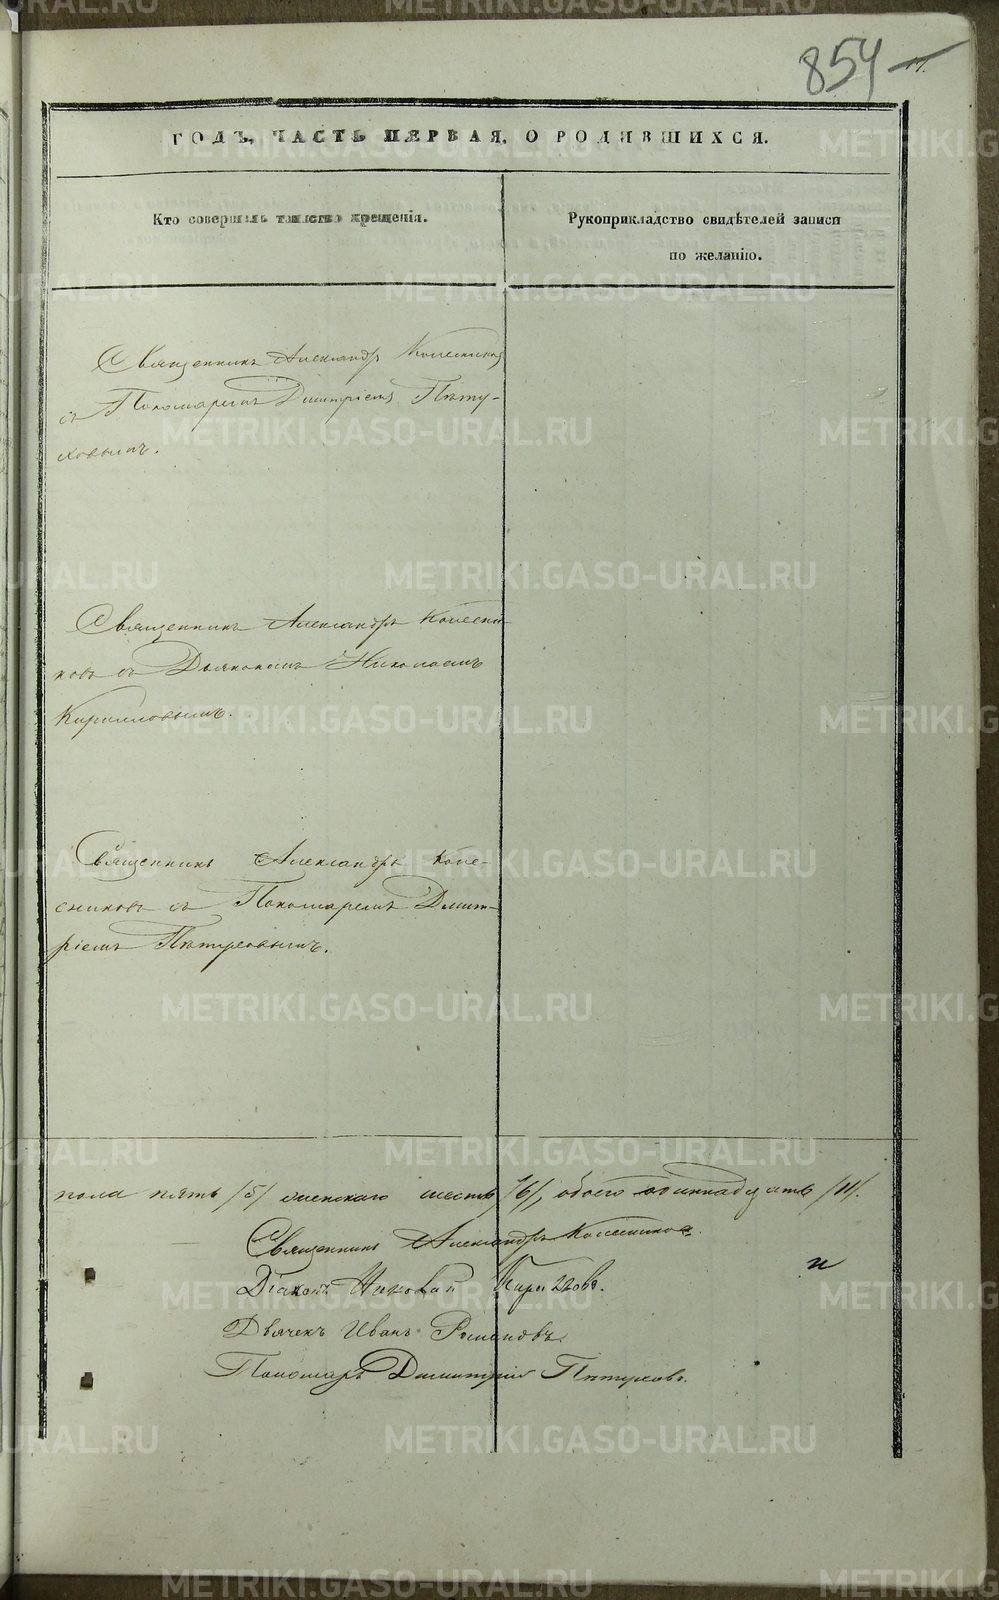 854
ГОДЪ, ЧАСТЬ ПЕРВАЯ, О РОДИВШИХСЯ.
Кто совершалъ таинство крещенія.
Рукоприкладство свидѣтелей записи
по желанію.
Священникъ Александръ Колесниковъ
съ Пономаремъ Димитріемъ Пѣту-
ховымъ.
Священникъ Александръ Колесни-
ковъ съ Дьякономъ Николаемъ
Кирилловымъ.
Священникъ Александръ Коле-
сниковъ съ Пономаремъ Дмит-
ріемъ Пѣтуховымъ.
пола пять /5/ женскаго шесть /6/, обоего одиннадцать /11/.
Священникъ Александръ Колесниковъ.
Діаконъ Николай Кирилловъ.
Дьячекъ Иванъ Романовъ
Пономарь Димитрій Пѣтуховъ.
METRIKI.GASO-URAL.RU